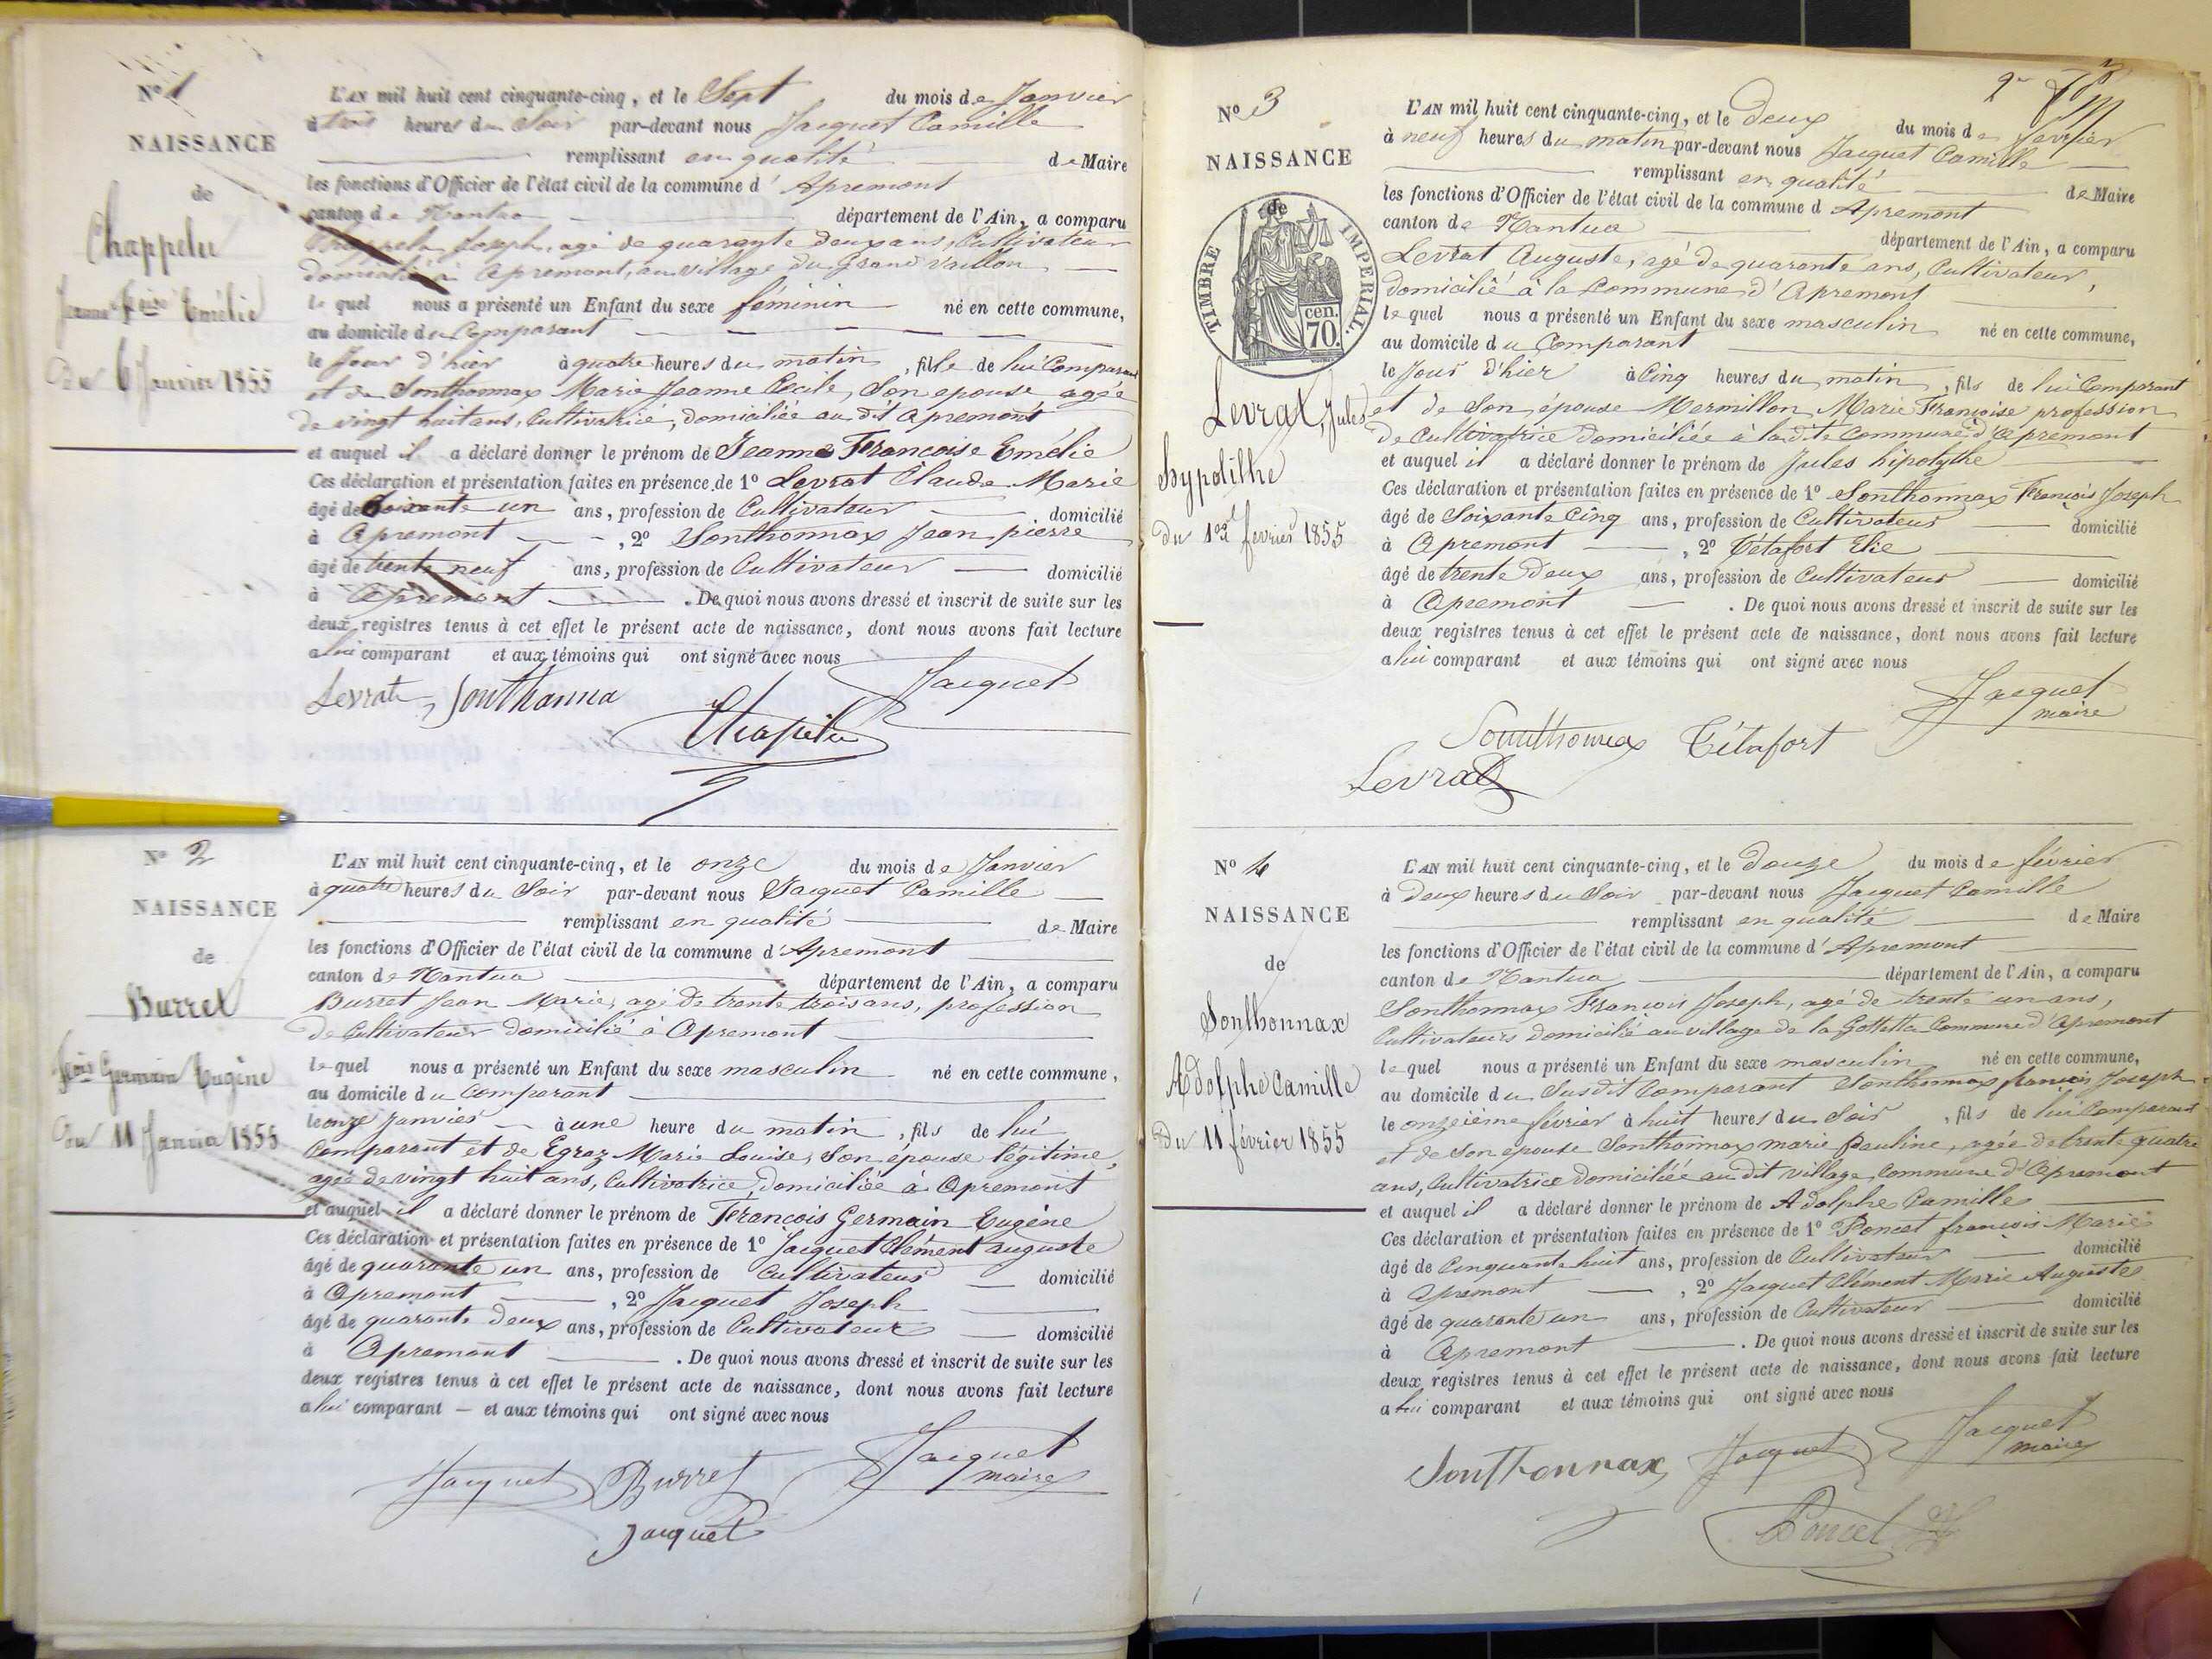 N° 1
NAISSANCE
de
Chappelu
Jeanne Fcoise Emélie
Du 6 Janvier 1855
L'AN mil huit cent cinquante-cinq, et le Sept du mois de Janvier
à trois heures du Soir par-devant nous Jacquet Camille
remplissant en qualité de Maire
les fonctions d'Officier de l'état civil de la commune d' Apremont
canton de Nantua département de l'Ain, a comparu
Joseph, agé de quarante deux ans, Cultivateur
domicilié à Apremont, au village du Grand Vaillon
le quel nous a présenté un Enfant du sexe féminin né en cette commune,
au domicile du Comparant
le Jour d'hier à quatre heures du matin, fille de lui Comparant
et de Sonthonnax Marie Jeanne Cecile, Son epouse agée
de vingt huit ans, Cultivatrice, domiciliée au dit Apremont
et auquel il a déclaré donner le prénom de Jeanne Francoise Emélie
Ces déclaration et présentation faites en présence de 1° Levrat Claude Marie
âgé de Soixante un ans, profession de Cultivateur domicilié
à Apremont , 2° Sonthonnax Jean pierre
âgé de trente neuf ans, profession de Cultivateur domicilié
à Apremont . De quoi nous avons dressé et inscrit de suite sur les
deux registres tenus à cet effet le présent acte de naissance, dont nous avons fait lecture
a lui comparant et aux témoins qui ont signé avec nous
Levrat Sonthonna Jacquet
Chapelu
N° 2
NAISSANCE
de
Burret
Fcois Germain Eugène
Du 11 Janvier 1855
L'AN mil huit cent cinquante-cinq, et le onze du mois de Janvier
à quatre heures du Soir par-devant nous Jacquet Camille
remplissant en qualité de Maire
les fonctions d'Officier de l'état civil de la commune d' Apremont
canton de Nantua département de l'Ain, a comparu
Burret Jean Marie, agé de trente trois ans, profession
de Cultivateur domicilié à Apremont
le quel nous a présenté un Enfant du sexe masculin né en cette commune,
au domicile du Comparant
le onze Janvier à une heure du matin, fils de lui
Comparant et de Egraz Marie Louise, Son epouse légitime,
agée de vingt huit ans, Cultivatrice, domiciliée à Apremont
et auquel il a déclaré donner le prénom de Francois Germain Eugène
Ces déclaration et présentation faites en présence de 1° Jacquet Clément auguste
âgé de quarante un ans, profession de Cultivateur domicilié
à Apremont , 2° Jacquet Joseph
âgé de quarante Deux ans, profession de Cultivateur domicilié
à Apremont . De quoi nous avons dressé et inscrit de suite sur les
deux registres tenus à cet effet le présent acte de naissance, dont nous avons fait lecture
a lui comparant — et aux témoins qui ont signé avec nous
Jacquet Burret Jacquet
maire
Jacquet
N° 3
NAISSANCE
de
TIMBRE IMPERIAL
cen.
70.
Levrat, Jules
hypolithe
du 1er fevrier 1855
L'AN mil huit cent cinquante-cinq, et le Deux du mois de fevrier
à neuf heures du matin par-devant nous Jacquet Camille
remplissant en qualité de Maire
les fonctions d'Officier de l'état civil de la commune d Apremont
canton de Nantua département de l'Ain, a comparu
Levrat Auguste, agé de quarante ans, Cultivateur,
domicilié à la Commune d'Apremont
le quel nous a présenté un Enfant du sexe masculin né en cette commune,
au domicile du Comparant
le Jour d'hier à Cinq heures du matin, fils de lui Comparant
et de Son épouse Mermillon Marie Françoise profession
de Cultivatrice Domiciliée à la dite Commune d'Apremont
et auquel il a déclaré donner le prénom de Jules hipolythe
Ces déclaration et présentation faites en présence de 1° Sonthonnax François Joseph
âgé de Soixante Cinq ans, profession de Cultivateur domicilié
à Apremont , 2° Tétafort Elie
âgé de trente Deux ans, profession de Cultivateur domicilié
à Apremont . De quoi nous avons dressé et inscrit de suite sur les
deux registres tenus à cet effet le présent acte de naissance, dont nous avons fait lecture
a lui comparant et aux témoins qui ont signé avec nous
Jacquet
maire
Sonnthonnax Tétafort
Levrat
N° 4
NAISSANCE
de
Sonthonnax
Adolphe Camille
Du 11 février 1855
L'AN mil huit cent cinquante-cinq, et le Douze du mois de février
à Deux heures du Soir par-devant nous Jacquet Camille
remplissant en qualité de Maire
les fonctions d'Officier de l'état civil de la commune d' Apremont
canton de Nantua département de l'Ain, a comparu
Sonthonnax François Joseph, agé de trente un ans,
Cultivateurs domicilié au village de la Gottetta Commune d'Apremont
le quel nous a présenté un Enfant du sexe masculin né en cette commune,
au domicile du Susdit Comparant Sonthonnax francois Joseph
le onzeième février à huit heures du Soir, fils de lui Comparant
et de Son epouse Sonthonnax marie Pauline, agée de trente quatre
ans, Cultivatrice Domiciliée au dit village, Commune d'Apremont
et auquel il a déclaré donner le prénom de Adolphe Camille
Ces déclaration et présentation faites en présence de 1° Poncet francois Marie
âgé de Cinquante huit ans, profession de Cultivateur domicilié
à Apremont , 2° Jacquet Clément Marie Auguste
âgé de quarante un ans, profession de Cultivateur domicilié
à Apremont . De quoi nous avons dressé et inscrit de suite sur les
deux registres tenus à cet effet le présent acte de naissance, dont nous avons fait lecture
a lui comparant et aux témoins qui ont signé avec nous
Sonthonnax Jacquet Jacquet
maire
Poncet